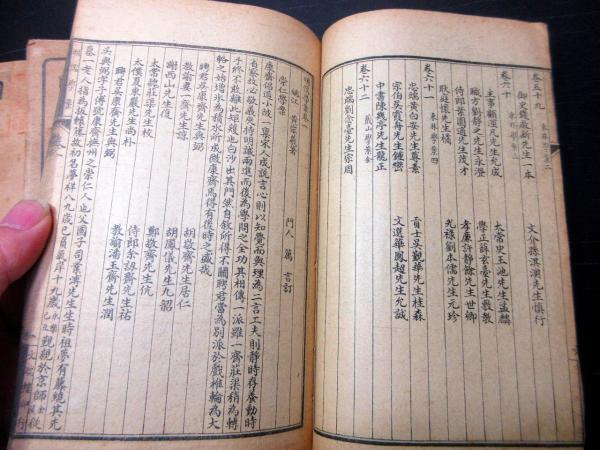 卷五十九 東林學案二
御史錢啟新先生一本
文介孫淇澳先生慎行
卷六十 東林學案三
主事顧涇凡先生允成
太常史玉池先生孟麟
職方劉靜之先生永澄
學正薛玄臺先生敷教
侍郎葉園適先生茂才
孝廉許靜餘先生世卿
耿庭懷先生橘
光祿劉本儒先生元珍
卷六十一 東林學案四
忠端黃白安先生尊素
宗伯吳霞舟先生鍾巒
貢士吳覲華先生桂森
中書陳幾亭先生龍正
文選華鳳超先生允誠
卷六十二 蕺山學案全
忠端劉念臺先生宗周
明儒學案卷一
門人萬言訂
崇仁學案
康齋倡道小陂一稟宋人成說言心則以知覺而與理為二言工夫則靜時存養動時
省察故必敬義夾持明誠兩進而後為學問之全功其相傳一派雖一齋莊渠稍為轉
手終不敢離此矩矱也白沙出其門然自敘所得不關聘君當為別派於戲椎輪為大
輅之始增冰為積水所成微康齋焉得有後時之盛哉
聘君吳康齋先生與弼
胡敬齋先生居仁
教諭婁一齋先生諒
謝西山先生復
胡鳳儀先生九韶
鄭敬齋先生伉
太常魏莊渠先生校
侍郎余訒齋先生祐
太僕夏東巖先生尚朴
教諭潘玉齋先生潤
聘君吳康齋先生與弼
吳與弼字子傅號康齋撫州之崇仁人也父國子司業溥先生生時祖夢有藤繞其先
墓一老人指為扳轅藤故初名夢祥八九歲已負氣岸十九歲永樂己丑覲親於京師金陵從